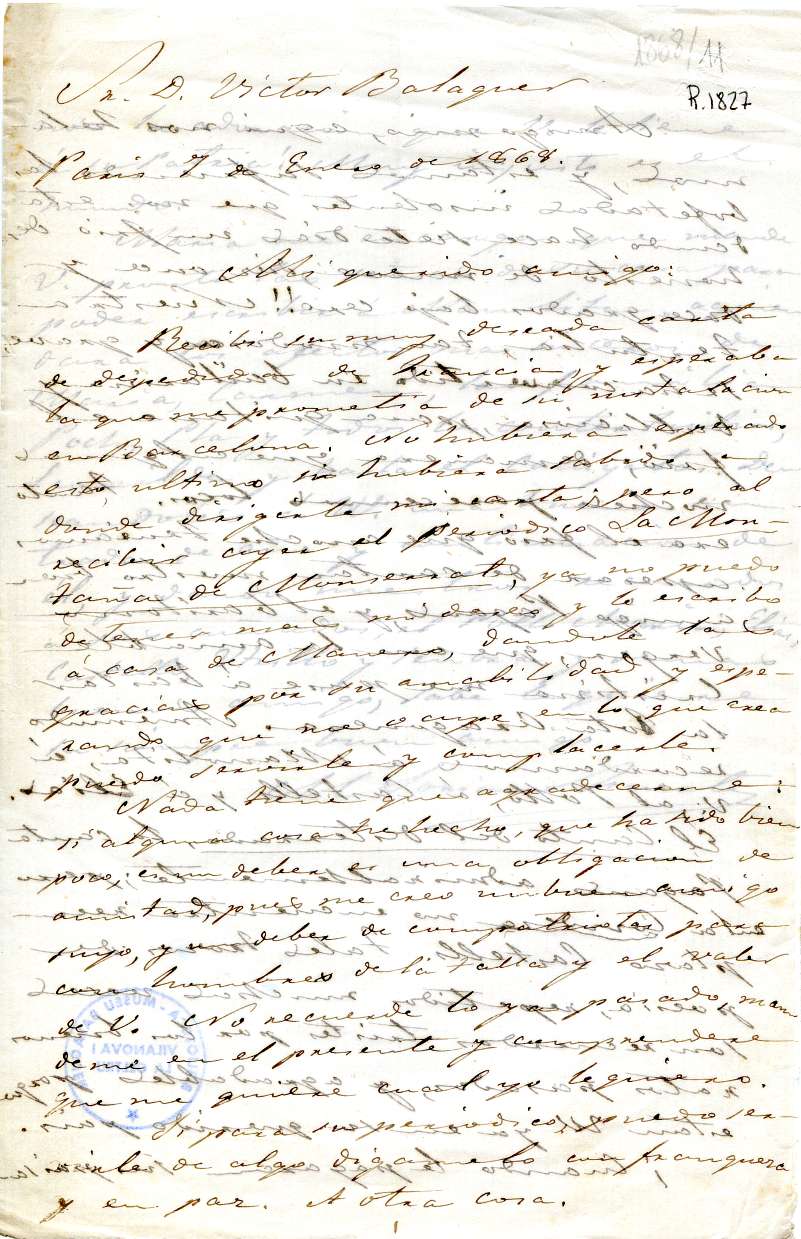 1868/11
R.1827
Sr. D. Victor Balaguer
Paris 7 de Enero de 1868.
Mi querido amigo:
Recibí su muy deseada carta
de despedida de Francia, y esperaba
la que me prometia de su instalacion
en Barcelona. No hubiera esperado
esto ultimo si hubiera sabido a
donde dirigirle mi carta; pero al
recibir ayer el periodico La Mon-
taña de Monserrate, ya no puedo
detener mas mi deseo y le escribo
á casa de Manero, dandole las
gracias por su amabilidad y espe-
rando que me ocupe en lo que crea
puedo servirle y complacerle.
Nada tiene que agradecerme:
si alguna cosa he hecho, que ha sido bien
poco, es un deber es una obligacion de
amistad, pues me creo un buen amigo
suyo, y un deber de compatriotas para
con hombres de la talla y el valer
de V. No recuerde lo ya pasado, man
deme en el presente y comprendere
que me quiere cual yo le quiero.
Si para su periodico puedo ser-
virle de algo digamelo con franqueza
y en paz. A otra cosa.
BIBLIOTECA - MUSEU BALAGUER
VILANOVA I
LA GELTRÚ